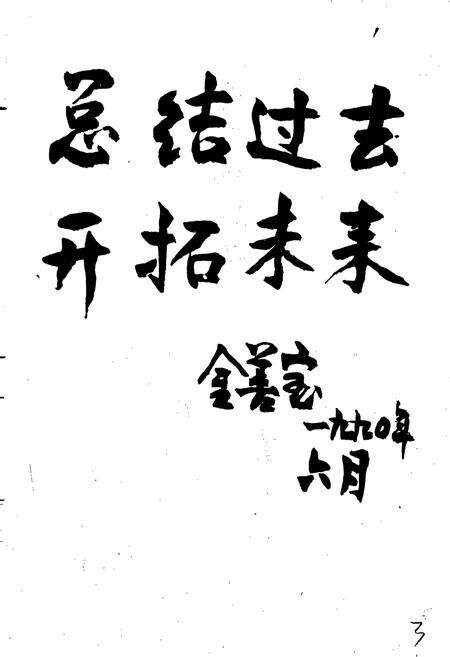 总结过去
开拓未来
金善宝
一九九〇年
六月
3